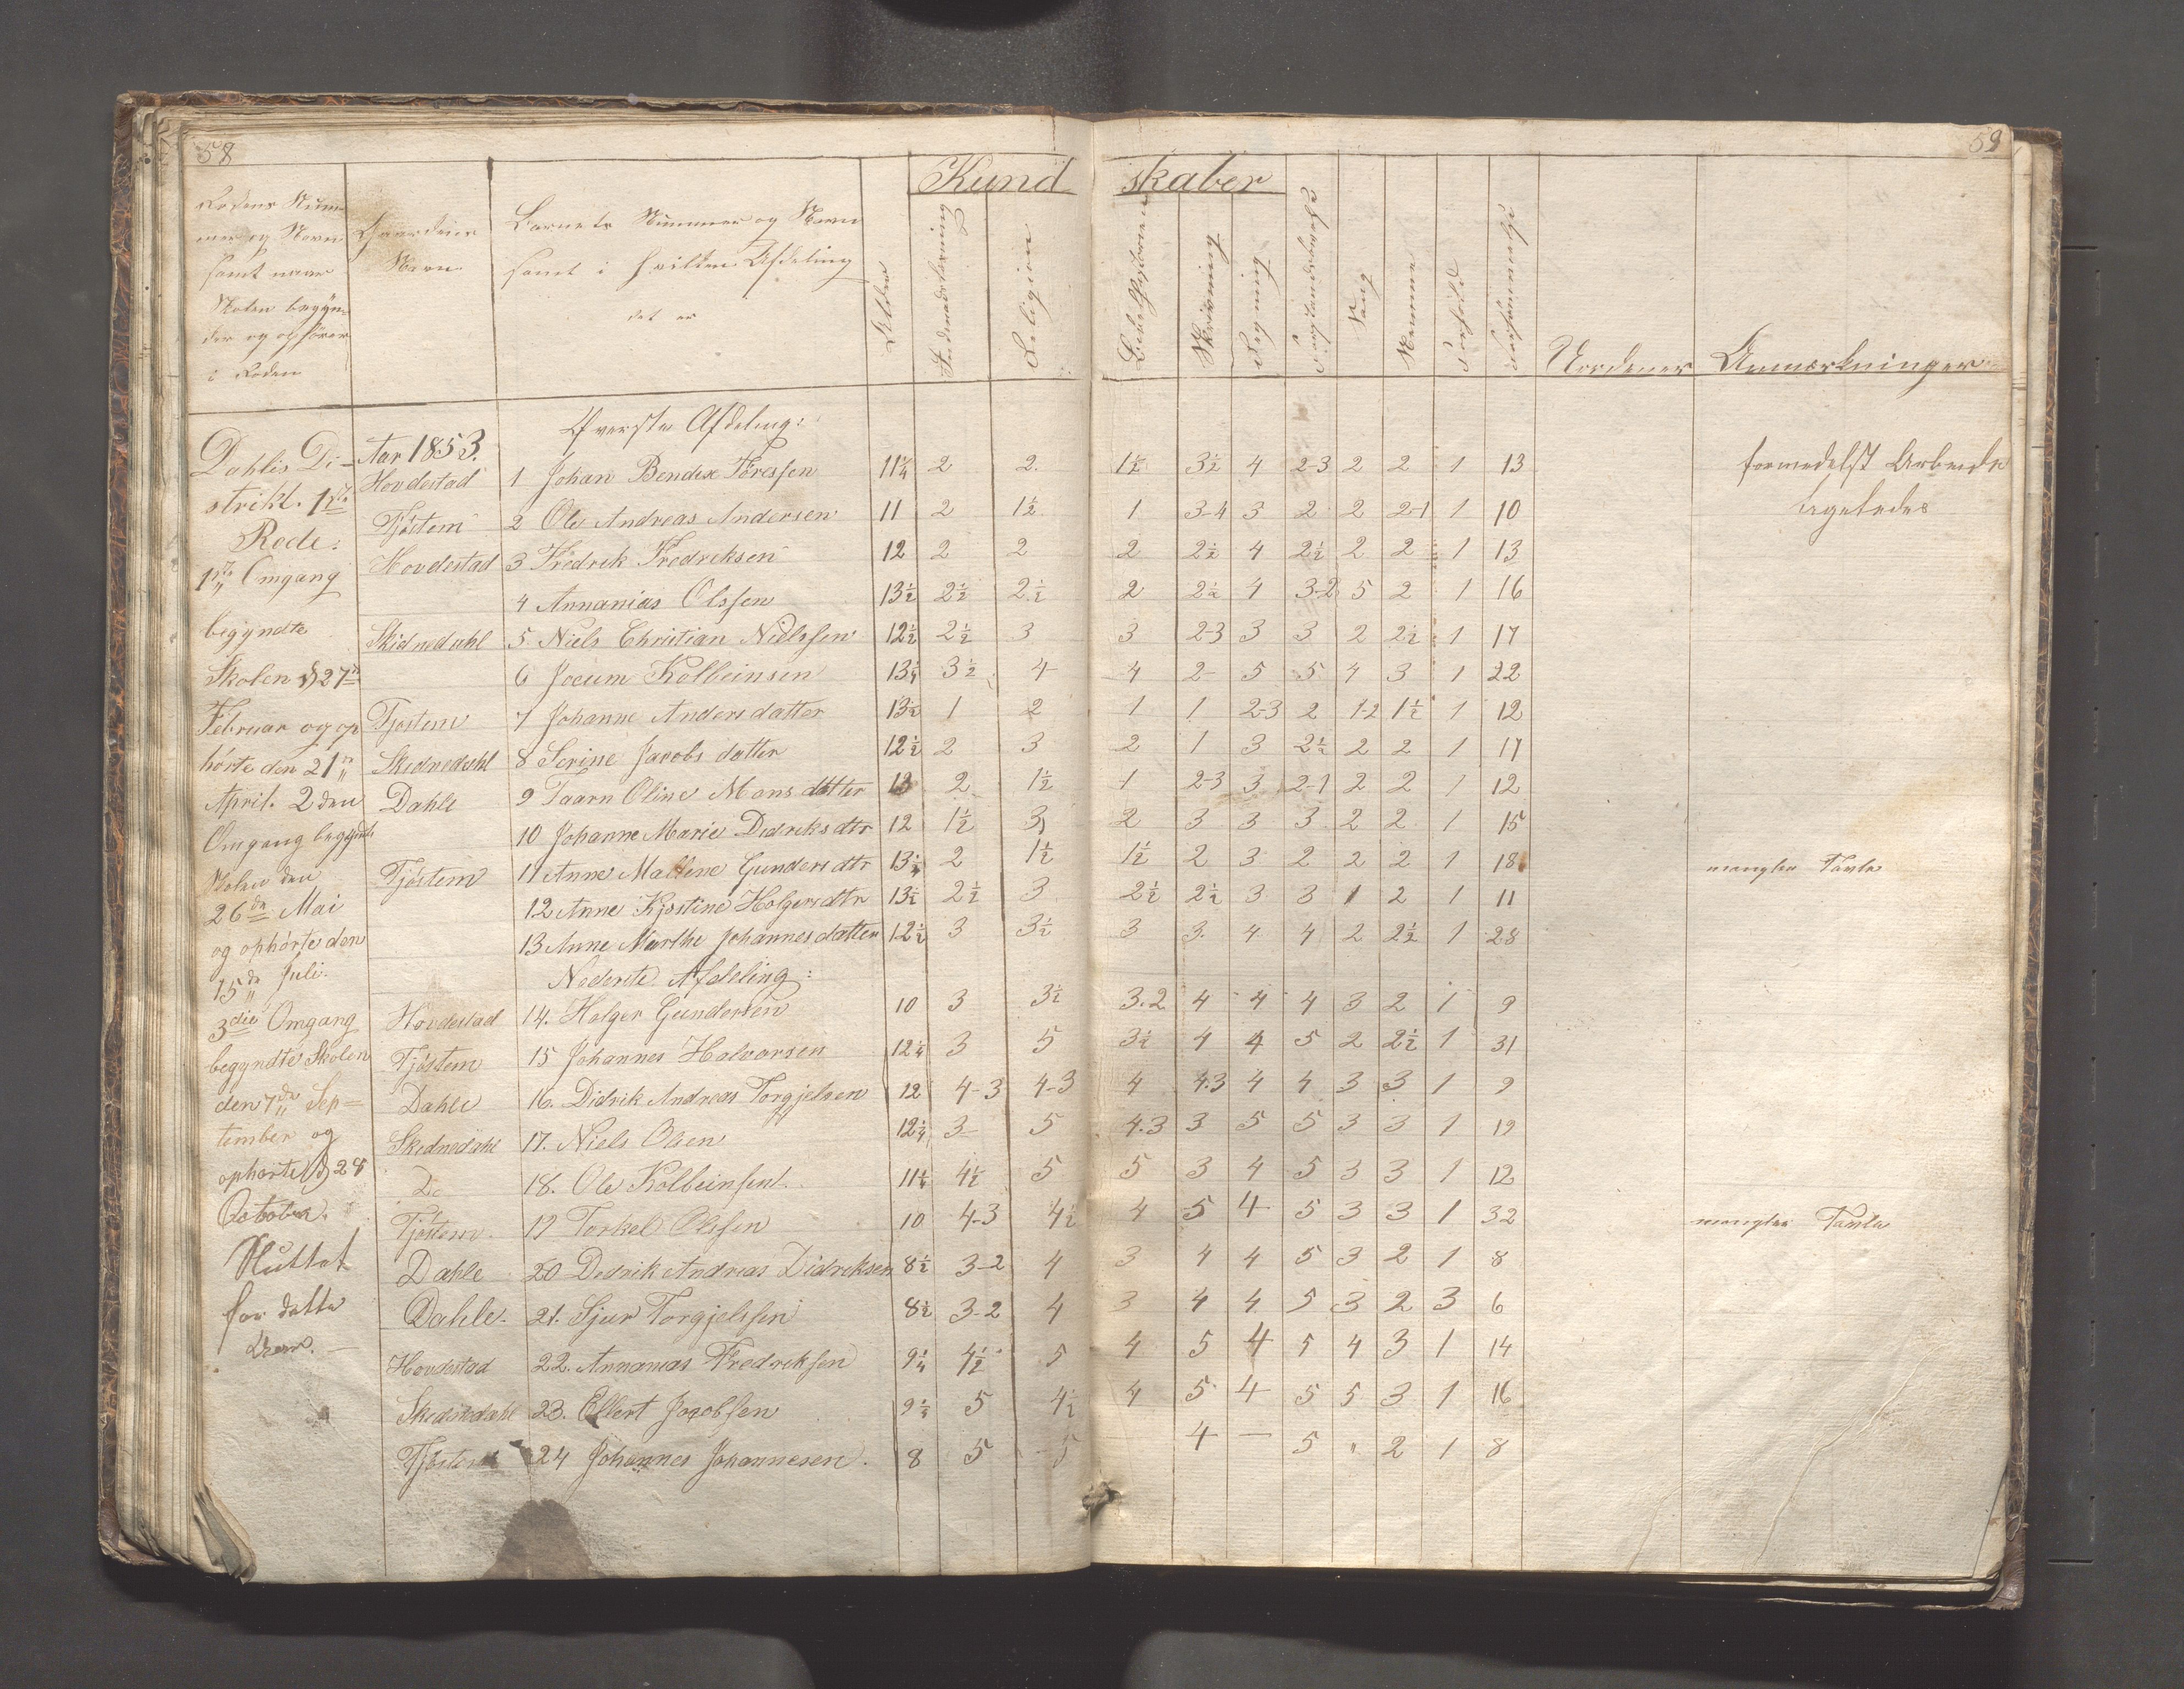 58
59
Kund skaber
Rodens Num-
mer og Navn
samt naar
Skolen begyn-
der og ophörer
i Roden
Gaardens
Navn
Barnets Nummer og Navn
samt i hvilken Afdeling
det er
Alder
Indenadslæsning
Religion
Bibelhistorien
Skrivning
Regning
Forstandsøvelse
Sang
Nemme
Forhold
Forsømmelse
Anmærkninger
Dahlis Di-
strikt. 1ste
Rode:
1ste Omgang
begyndte
Skolen d 27de
Februar og op
hörte den 21de
April. 2den
Omgang begyndte
Skolen den
26de Mai
og ophörte den
15de Juli.
3die Omgang
begyndte Skolen
den 7de Sep=
tember og
ophörte d 28
October.
Sluttet
for dette
Aar. —
Aar 1853.
Överste Afdeling:
Hovdestad 1 Johan Bendix Töressen 11¼ 2 2. 1½ 3½ 4 2-3 2 2 1 13 formedelst Arbeide
Tjöstem 2 Ole Andreas Andersen 11 2 1½ 1 3-4 3 2 2 2-1 1 10 ligeledes
Hovdestad 3 Fredrek Fredreksen 12 2 2 2 2½ 4 2½ 2 2 1 13
4 Annanias Olssen 13½ 2½ 2½ 2 2½ 4 3-2 5 2 1 16
Skidnedahl 5 Niels Christian Nielssen 12½ 2½ 3 3 2-3 3 3 2 2½ 1 17
6 Jocum Kolbeinsen 13¼ 3½ 4 4 2- 5 5 4 3 1 22
Tjöstem 7 Johanne Andersdatter 13½ 1 2 1 1 2-3 2 1-2 1½ 1 12
Skidnedahl 8 Serine Jacobsdatter 12½ 2 3 2 1 3 2½ 2 2 1 17
Dahle 9 Taarn Oline Monsdatter 13 2 1½ 1 2-3 3 2-1 2 2 1 12
10 Johanne Marie Didreksdtr 12 1½ 3 2 3 3 3 2 2 1 15
Tjöstem 11 Anne Mallene Gundersdtr 13¼ 2 1½ 1½ 2 3 2 2 2 1 18 mangler Tavle
12 Anne Kjostine Holgersdtr 13½ 2½ 3 2½ 2½ 3 3 1 2 1 11
13 Anne Marthe Johannesdatter 12½ 3 3½ 3 3. 4 4 2 2½ 1 28
Nederste Afdeling:
Hovdestad 14. Holger Gundersen 10 3 3½ 3.2 4 4 4 3 2 1 9
Tjöstem 15 Johannes Halvorsen 12¼ 3 5 3½ 4 4 5 2 2½ 1 31
Dahle 16. Didrik Andreas Torgjelsen 12 4-3 4-3 4 4.3 4 4 3 3 1 9
Skidnedahl 17. Niels Olsen 12¼ 3 5 4.3 3 5 5 3 3 1 19
Do 18. Ole Kolbeinsen. 11¼ 4½ 5 5 3 4 5 3 3 1 12
Tjöstem. 19 Torkel Olssen 10 4-3 4½ 4 5 4 5 3 3 1 32 mangler Tavle
Dahle 20 Dedrik Andreas Didreksen 8½ 3-2 4 3 4 4 5 3 2 1 8
Dahle. 21. Sjur Torgjelssen 8½ 3-2 4 3 4 4 5 3 2 3 6
Hovdestad 22. Annanias Fredreksen 9¼ 4½ 5 4 5 4 5 4 3 1 14
Skidnedahl 23. Ellert Jacobsen 9¼ 5 4½ 4 5 4 5 5 3 1 16
Tjöstem 24 Johannes Johannesen. 8 5 5 4 — 5 " 2 1 8